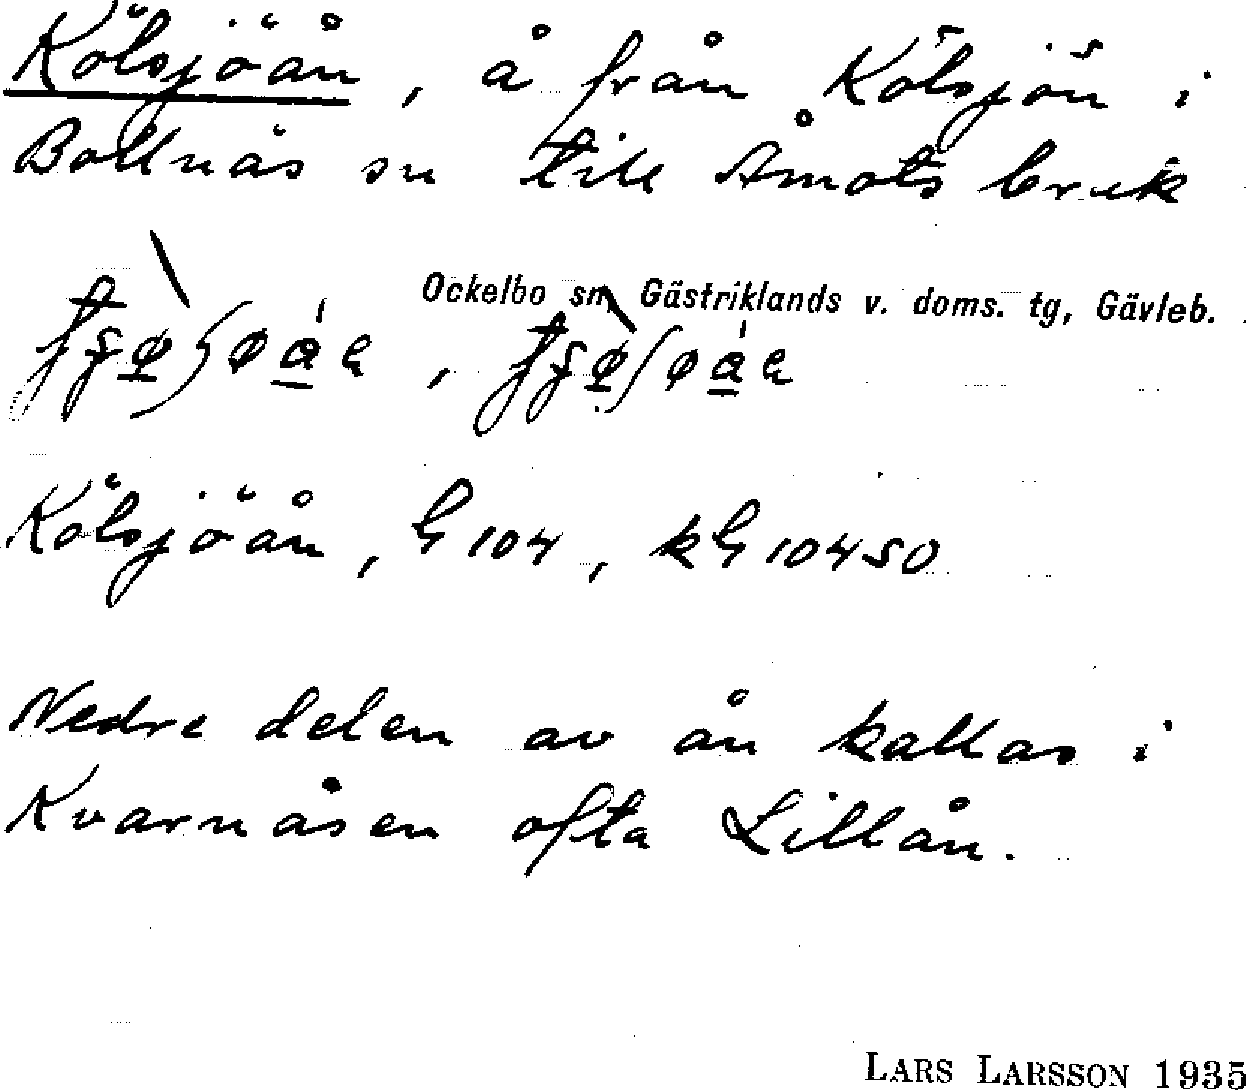 Kölsjöån, å från Kölsjön i
Bollnäs sn till Åmots bruk
Ockelbo sn, Gästriklands v. doms. tg, Gävleb.
Kölsjöån, G 104, kG 10450
Nedre delen av ån kallas i
Kvarnåsen ofta Lillån.
LARS LARSSON 1935